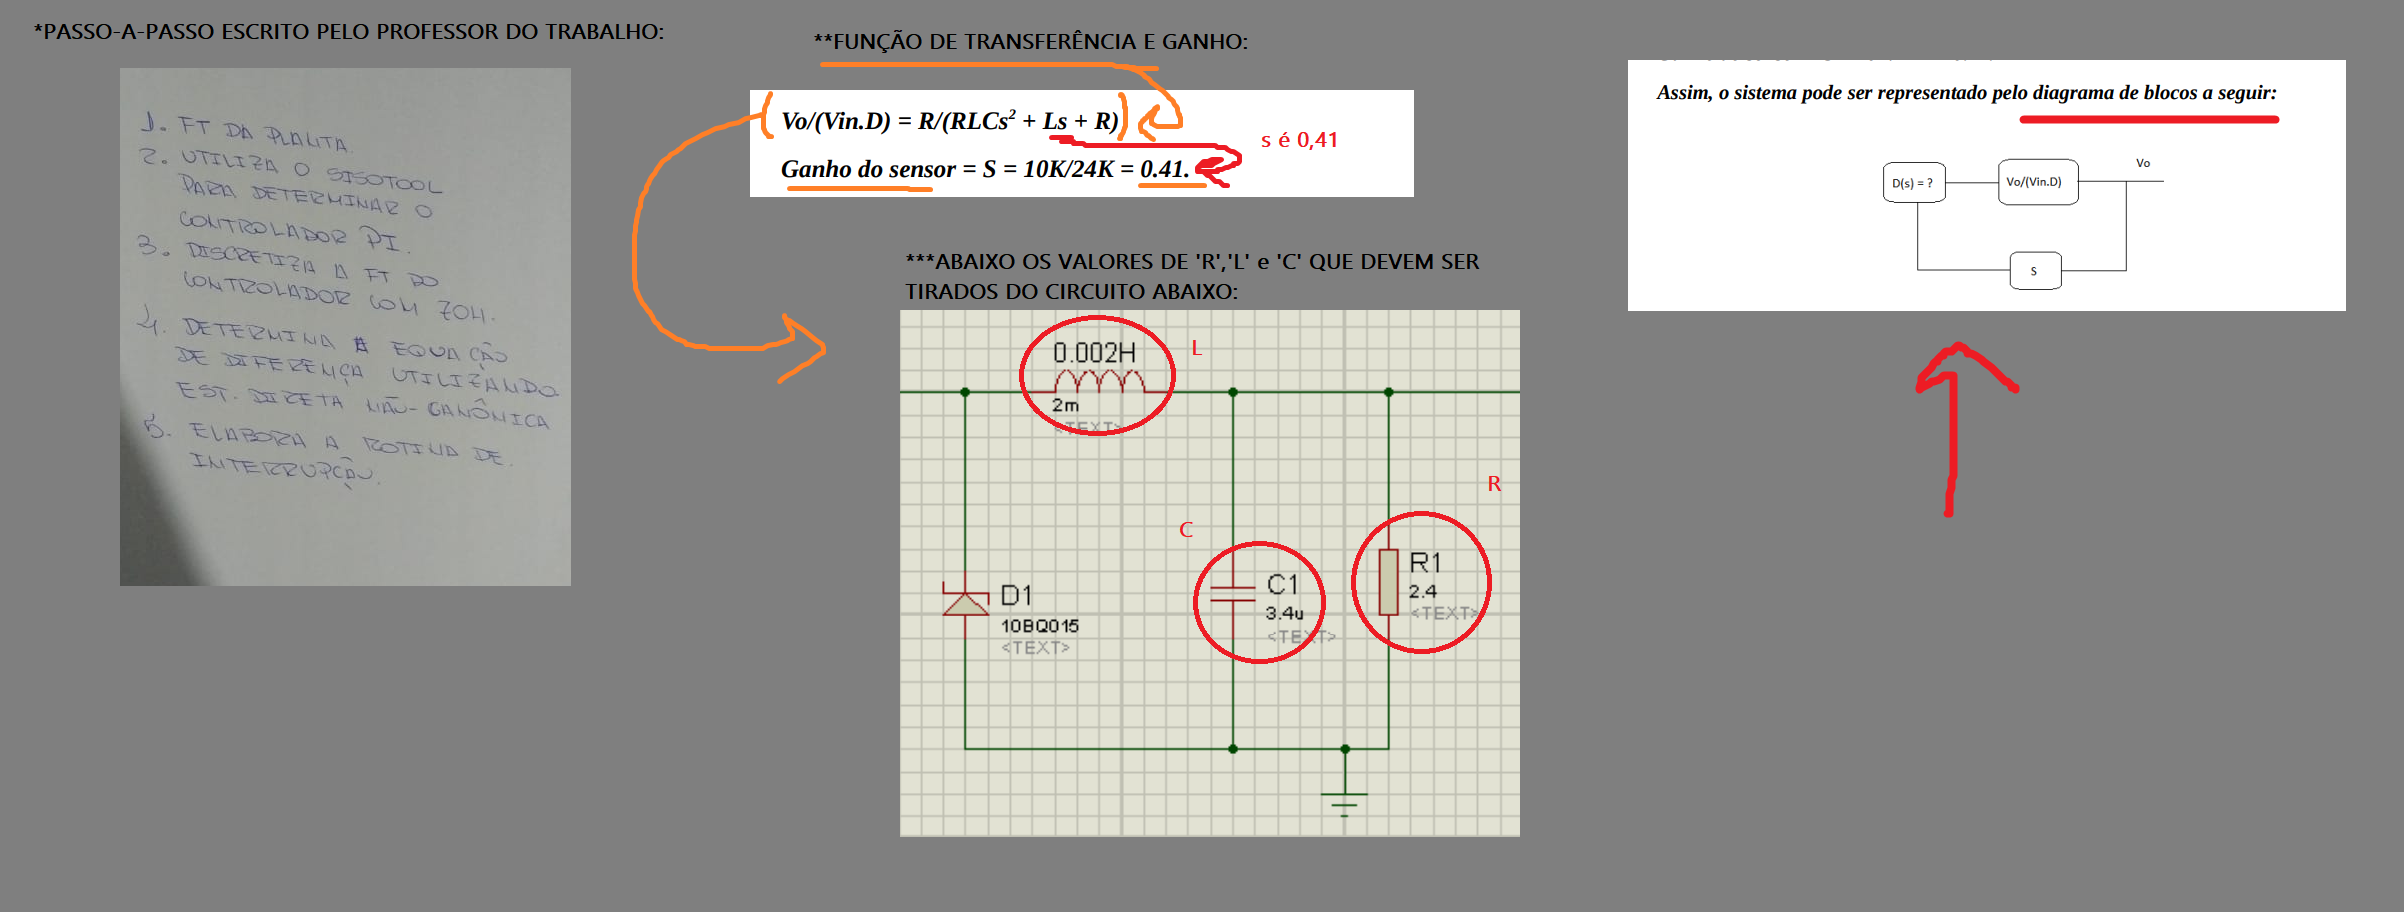 *PASSO-A-PASSO ESCRITO PELO PROFESSOR DO TRABALHO:
1. FT DA PLANTA.
2. UTILIZA O SISOTOOL
PARA DETERMINAR O
CONTROLADOR PI.
3. DISCRETIZA A FT DO
CONTROLADOR COM ZOH.
4. DETERMINA A EQUAÇÃO
DE DIFERENÇA UTILIZANDO
EST. DIRETA NÃO-CANÔNICA
5. ELABORA A ROTINA DE
INTERRUPÇÃO.
**FUNÇÃO DE TRANSFERÊNCIA E GANHO:
Vo/(Vin.D) = R/(RLCs² + Ls + R)
s é 0,41
Ganho do sensor = S = 10K/24K = 0.41.
***ABAIXO OS VALORES DE 'R','L' e 'C' QUE DEVEM SER
TIRADOS DO CIRCUITO ABAIXO:
0.002H
L
2m
<TEXT>
R
C
D1
10BQ015
<TEXT>
C1
3.4u
<TEXT>
R1
2.4
<TEXT>
Assim, o sistema pode ser representado pelo diagrama de blocos a seguir:
Vo
D(s) = ?
Vo/(Vin.D)
S